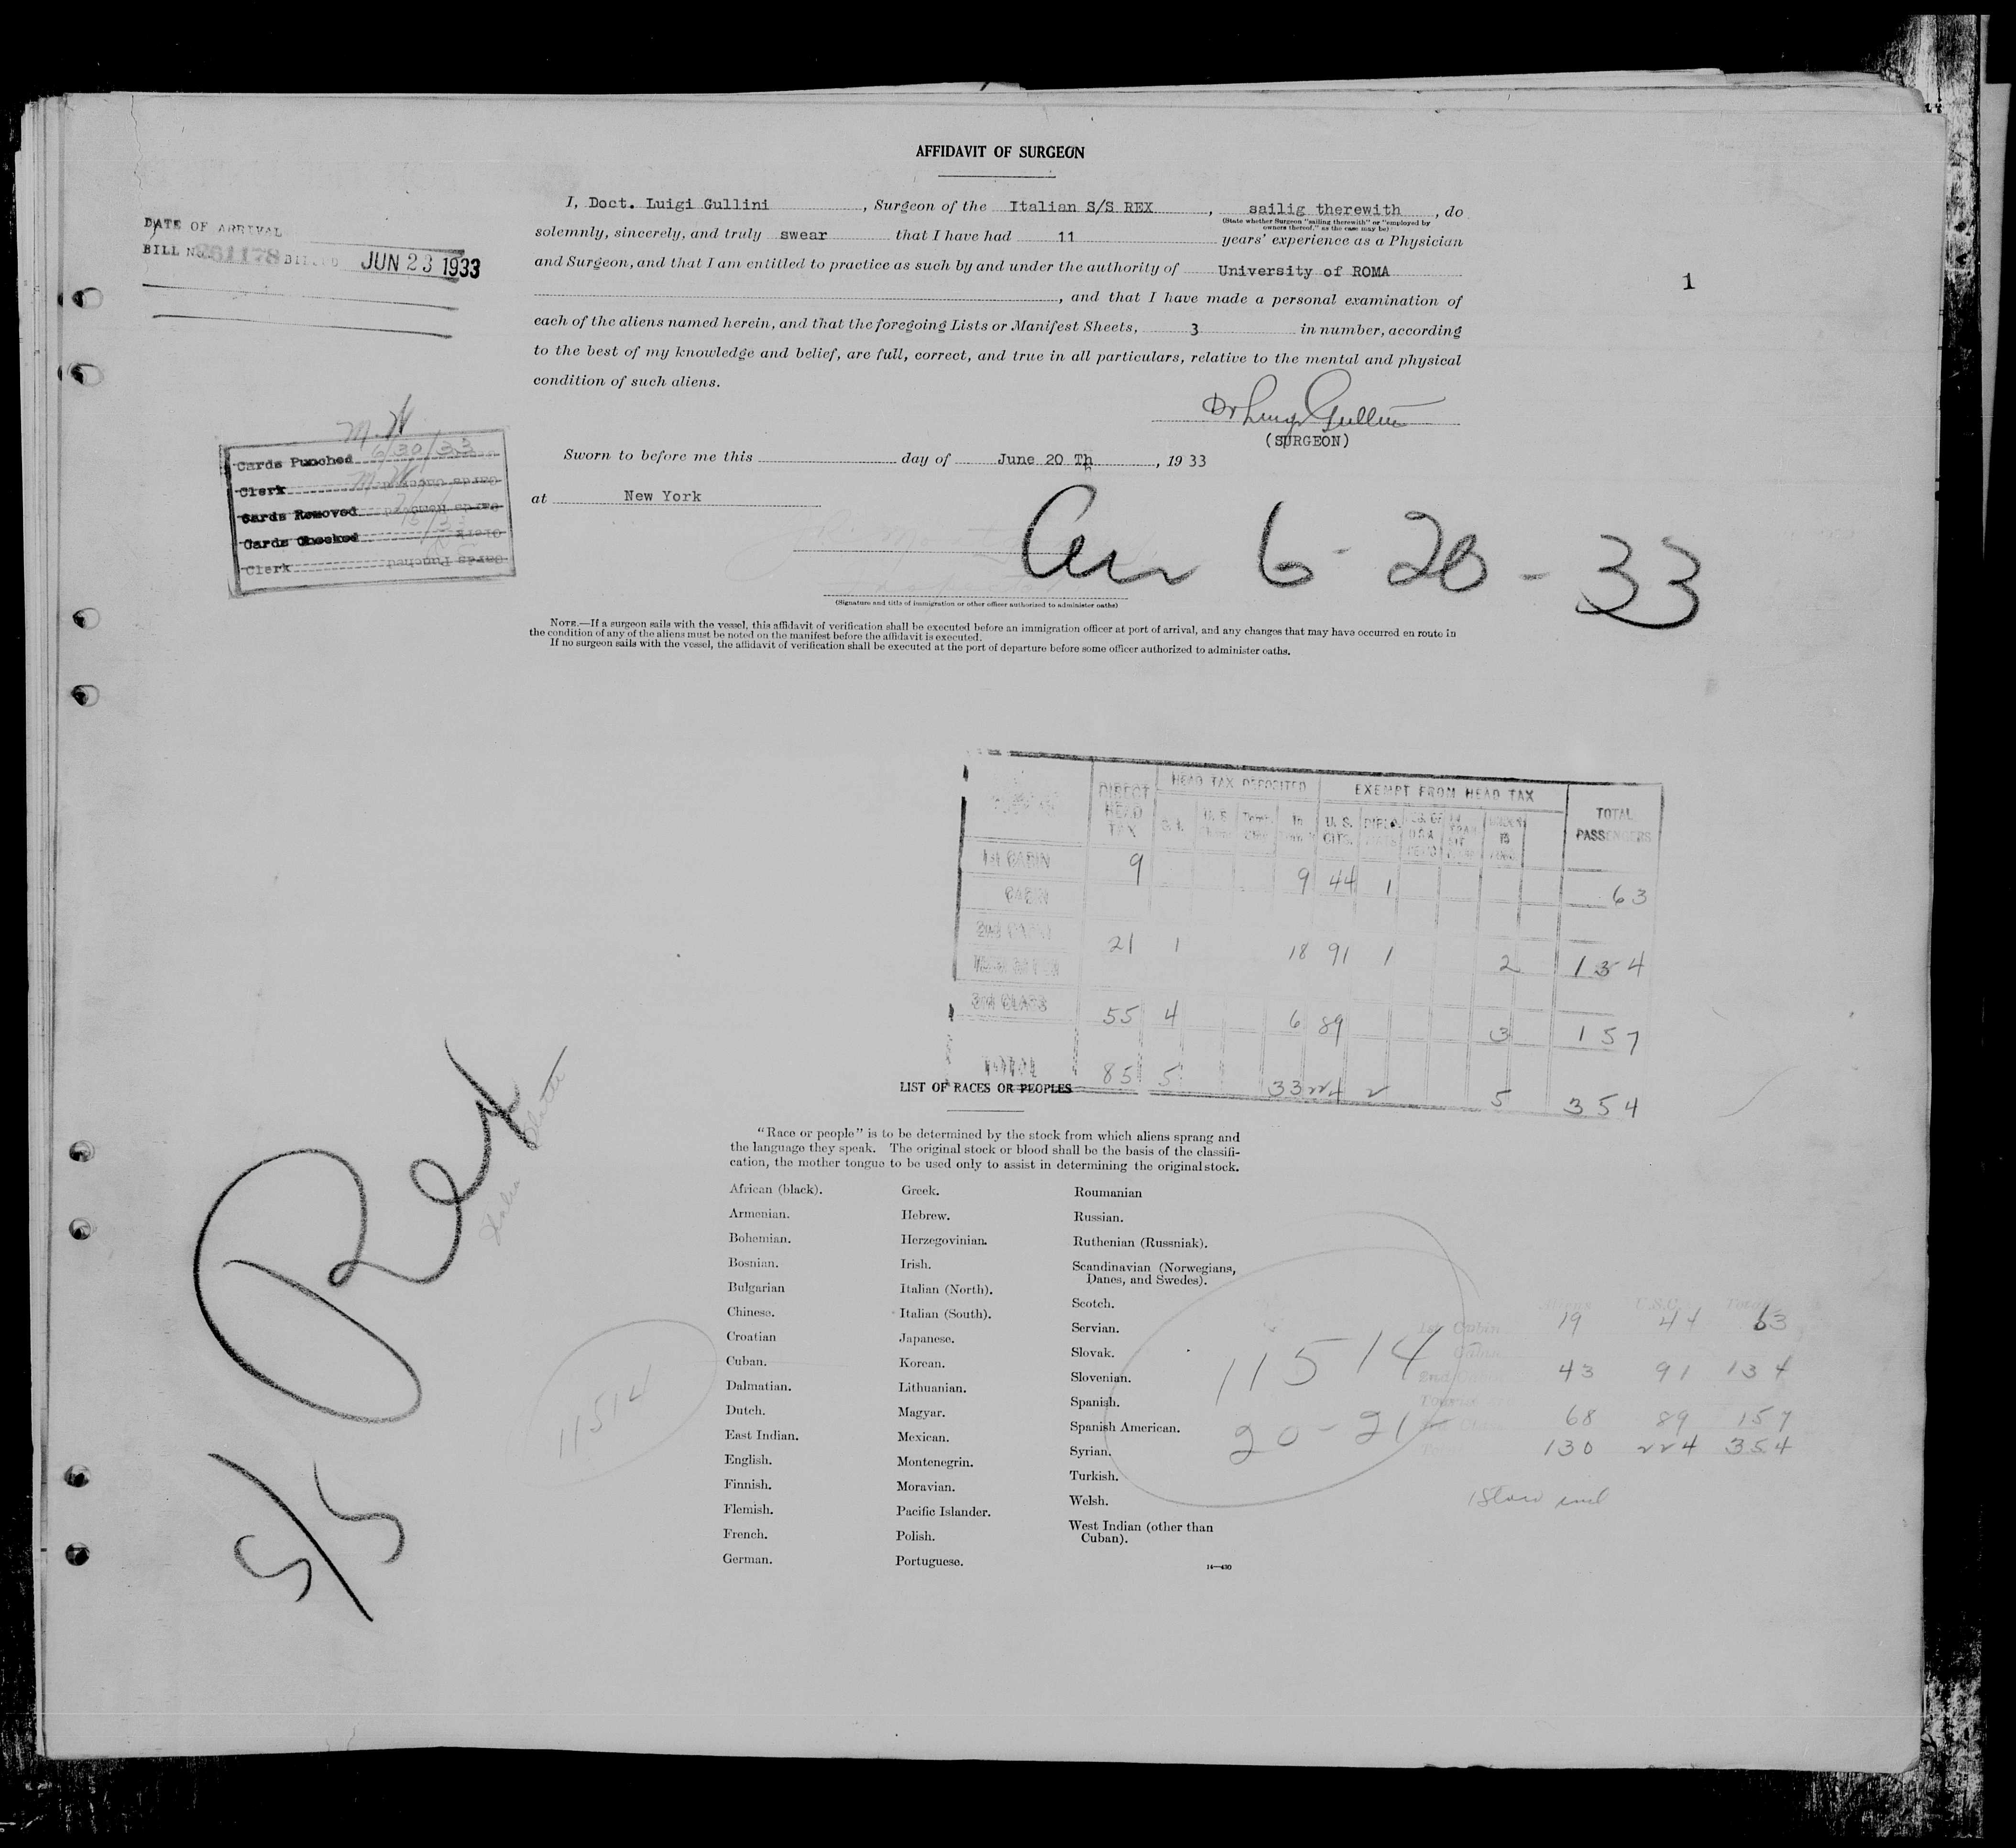 AFFIDAVIT OF SURGEON
I, Doct. Luigi Gullini, Surgeon of the Italian S/S REX, sailig therewith, do
(State whether Surgeon "sailing therewith" or "employed by
owners thereof," as the case may be)
solemnly, sincerely, and truly swear that I have had 11 years' experience as a Physician
and Surgeon, and that I am entitled to practice as such by and under the authority of University of ROMA
, and that I have made a personal examination of
each of the aliens named herein, and that the foregoing Lists or Manifest Sheets, 3 in number, according
to the best of my knowledge and belief, are full, correct, and true in all particulars, relative to the mental and physical
condition of such aliens.
Dr Luigi Gullini
(SURGEON)
Sworn to before me this day of June 20 Th, 1933
at New York
(Signature and title of immigration or other officer authorized to administer oaths)
NOTE.—If a surgeon sails with the vessel, this affidavit of verification shall be executed before an immigration officer at port of arrival, and any changes that may have occurred en route in
the condition of any of the aliens must be noted on the manifest before the affidavit is executed.
If no surgeon sails with the vessel, the affidavit of verification shall be executed at the port of departure before some officer authorized to administer oaths.
1
DATE OF ARRIVAL
BILL No. 261178 JUN 23 1933
M.W
Cards Punched 6/30/33
Clerk M.W
Cards Removed
Cards Checked
Clerk
Arr 6-20-33
DIRECT HEAD TAX HEAD TAX DEPOSITED EXEMPT FROM HEAD TAX TOTAL PASSENGERS
U. S. CITS.
1st CABIN 9 9 44 1 63
CABIN
2nd CABIN 21 1 18 91 1 2 134
3rd CLASS 55 4 6 89 3 157
TOTAL 85 5 33 224 2 5 354
LIST OF RACES OR PEOPLES
"Race or people" is to be determined by the stock from which aliens sprang and
the language they speak. The original stock or blood shall be the basis of the classifi-
cation, the mother tongue to be used only to assist in determining the original stock.
African (black).
Armenian.
Bohemian.
Bosnian.
Bulgarian
Chinese.
Croatian
Cuban.
Dalmatian.
Dutch.
East Indian.
English.
Finnish.
Flemish.
French.
German.
Greek.
Hebrew.
Herzegovinian.
Irish.
Italian (North).
Italian (South).
Japanese.
Korean.
Lithuanian.
Magyar.
Mexican.
Montenegrin.
Moravian.
Pacific Islander.
Polish.
Portuguese.
Roumanian
Russian.
Ruthenian (Russniak).
Scandinavian (Norwegians,
Danes, and Swedes).
Scotch.
Servian.
Slovak.
Slovenian.
Spanish.
Spanish American.
Syrian.
Turkish.
Welsh.
West Indian (other than
Cuban).
14—430
S/S Rex
11514
11514
20-21
Aliens U.S.C. Total
1st Cabin 19 44 63
Cabin
2nd Cabin 43 91 134
Tourist
3rd Class 68 89 157
130 224 354